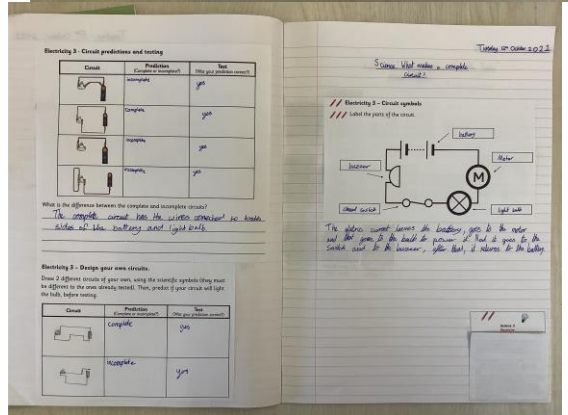 Electricity 3 - Circuit predictions and testing
Circuit
Prediction
(Complete or incomplete?)
Test
(Was your prediction correct?)
incomplete
yes
Complete
yes
incomplete
yes
incomplete
yes
What is the difference between the complete and incomplete circuits?
The complete circuit has the wires connected to both
sides of the battery and light bulb.
Electricity 3 - Design your own circuits.
Draw 2 different circuits of your own, using the scientific symbols (they must
be different to the ones already tested). Then, predict if your circuit will light
the bulb, before testing.
Circuit
Prediction
(Complete or incomplete?)
Test
(Was your prediction correct?)
complete
yes
incomplete
yes
Tuesday October 2022
Science What makes a complete
circuit?
Electricity 3 - Circuit symbols
Label the parts of the circuit
battery
Motor
M
buzzer
closed switch
light bulb
The electric current leaves the battery, goes to the motor
and that goes to the bulb to power it. And it goes to the
switch and to the buzzer, after that, it returns to the battery.